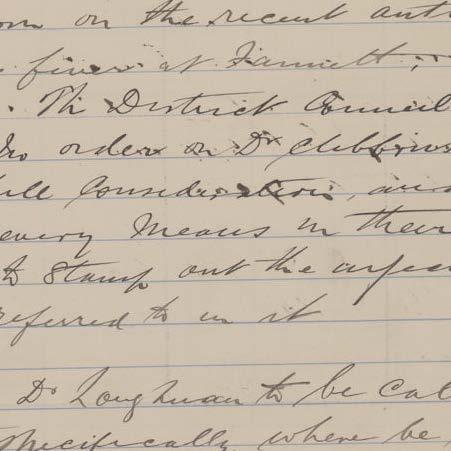 on the recent
fever at
. The District Council
order on Dr
full Consideration, and
every means in their
to Stamp out the
referred to in it
Dr Loughnan to be Cal
specifically where he